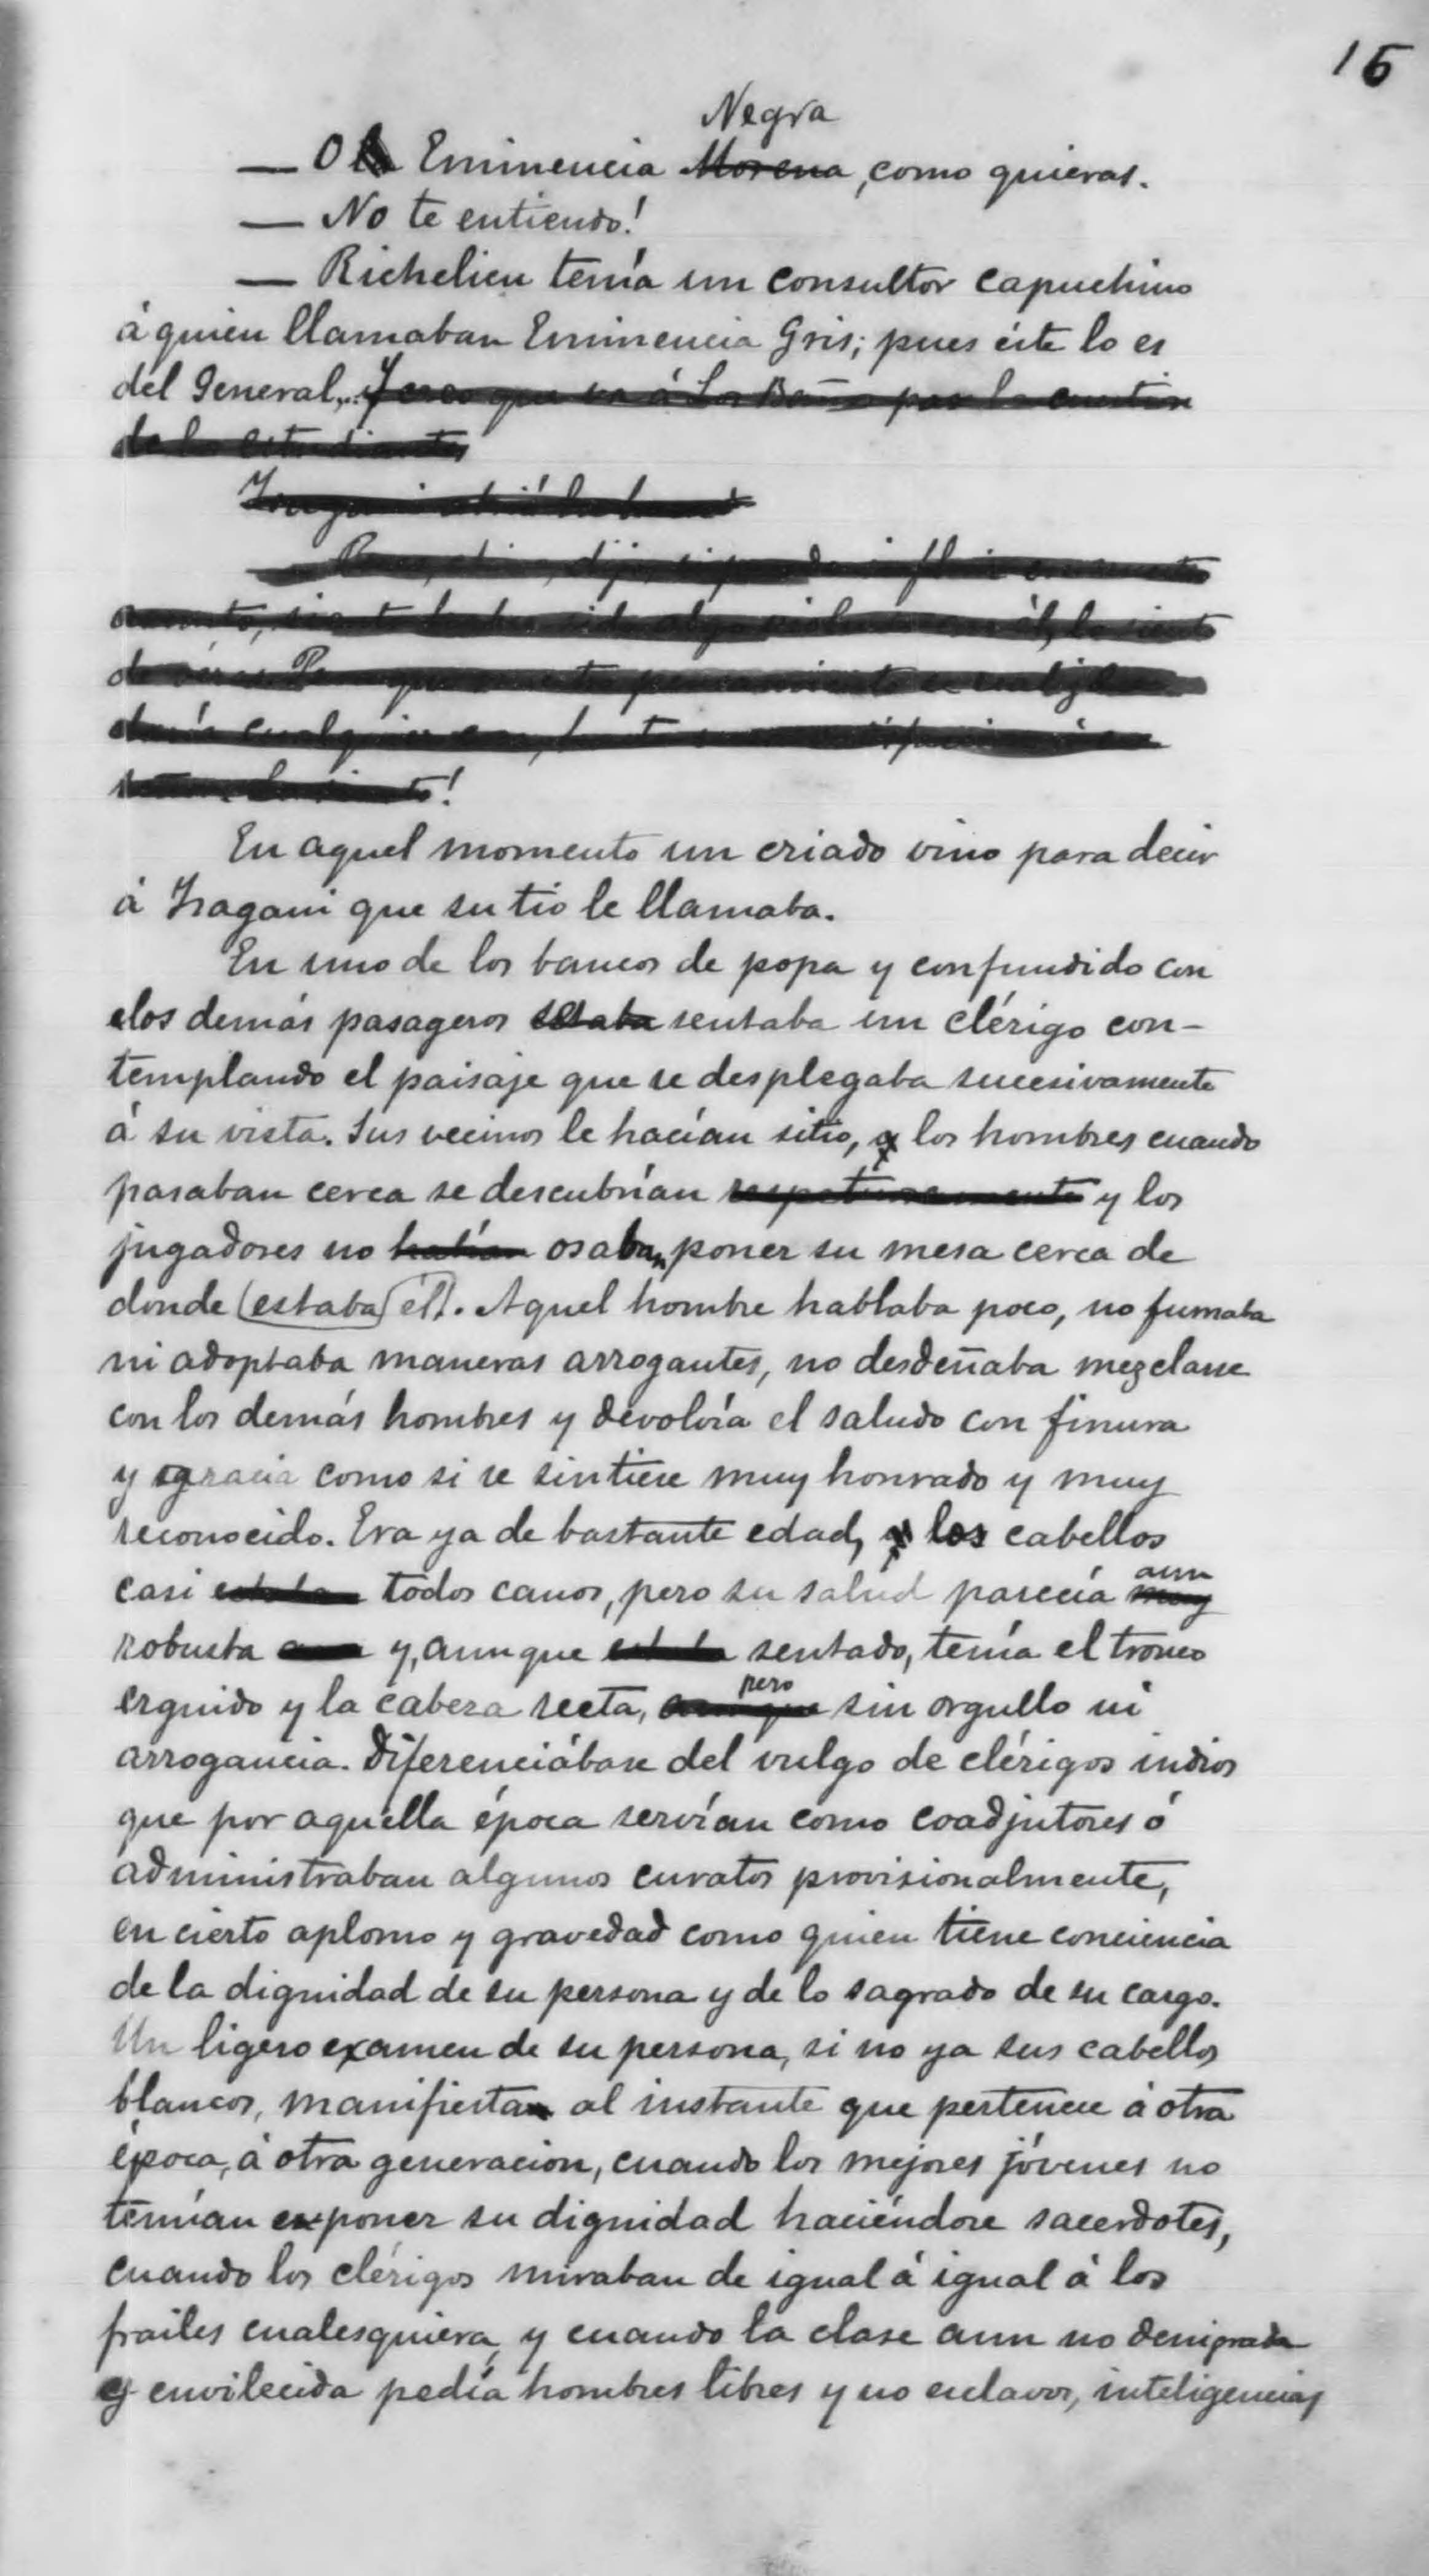 15
Negra
— O la Eminencia Morena, como quieras.
— No te entiendo!
— Richelieu tenía un consultor capuchino
á quien llamaban Eminencia Gris; pues éste lo es
del General...
En aquel momento un criado vino para decir
á Isagani que su tio le llamaba.
En uno de los bancos de popa y confundido con
los demás pasageros estaba sentaba un clérigo con-
templando el paisaje que se desplegaba sucesivamente
á su vista. Sus vecinos le hacían sitio, y los hombres cuando
pasaban cerca se descubrían respetuosamente y los
jugadores no habían osaban poner su mesa cerca de
donde (estaba) él). Aquel hombre hablaba poco, no fumaba
ni adoptaba maneras arrogantes, no desdeñaba mezclarse
con los demás hombres y devolvía el saludo con finura
y gracia como si se sintiese muy honrado y muy
reconocido. Era ya de bastante edad, y los cabellos
aun
casi estaban todos canos, pero su salud parecía muy
robusta aun y, aunque estaba sentado, tenía el tronco
pero
erguido y la cabeza recta, aunque sin orgullo ni
arrogancia. Diferenciábase del vulgo de clérigos indios
que por aquella época servían como coadjutores ó
administraban algunos curatos provisionalmente,
en cierto aplomo y gravedad como quien tiene conciencia
de la dignidad de su persona y de lo sagrado de su cargo.
Un ligero examen de su persona, si no ya sus cabellos
blancos, manifiesta al instante que pertenece á otra
época, á otra generacion, cuando los mejores jóvenes no
temían exponer su dignidad haciéndose sacerdotes,
cuando los clérigos miraban de igual á igual á los
frailes cualesquiera, y cuando la clase aun no denigrada
y envilecida pedía hombres libres y no esclavos, inteligencias